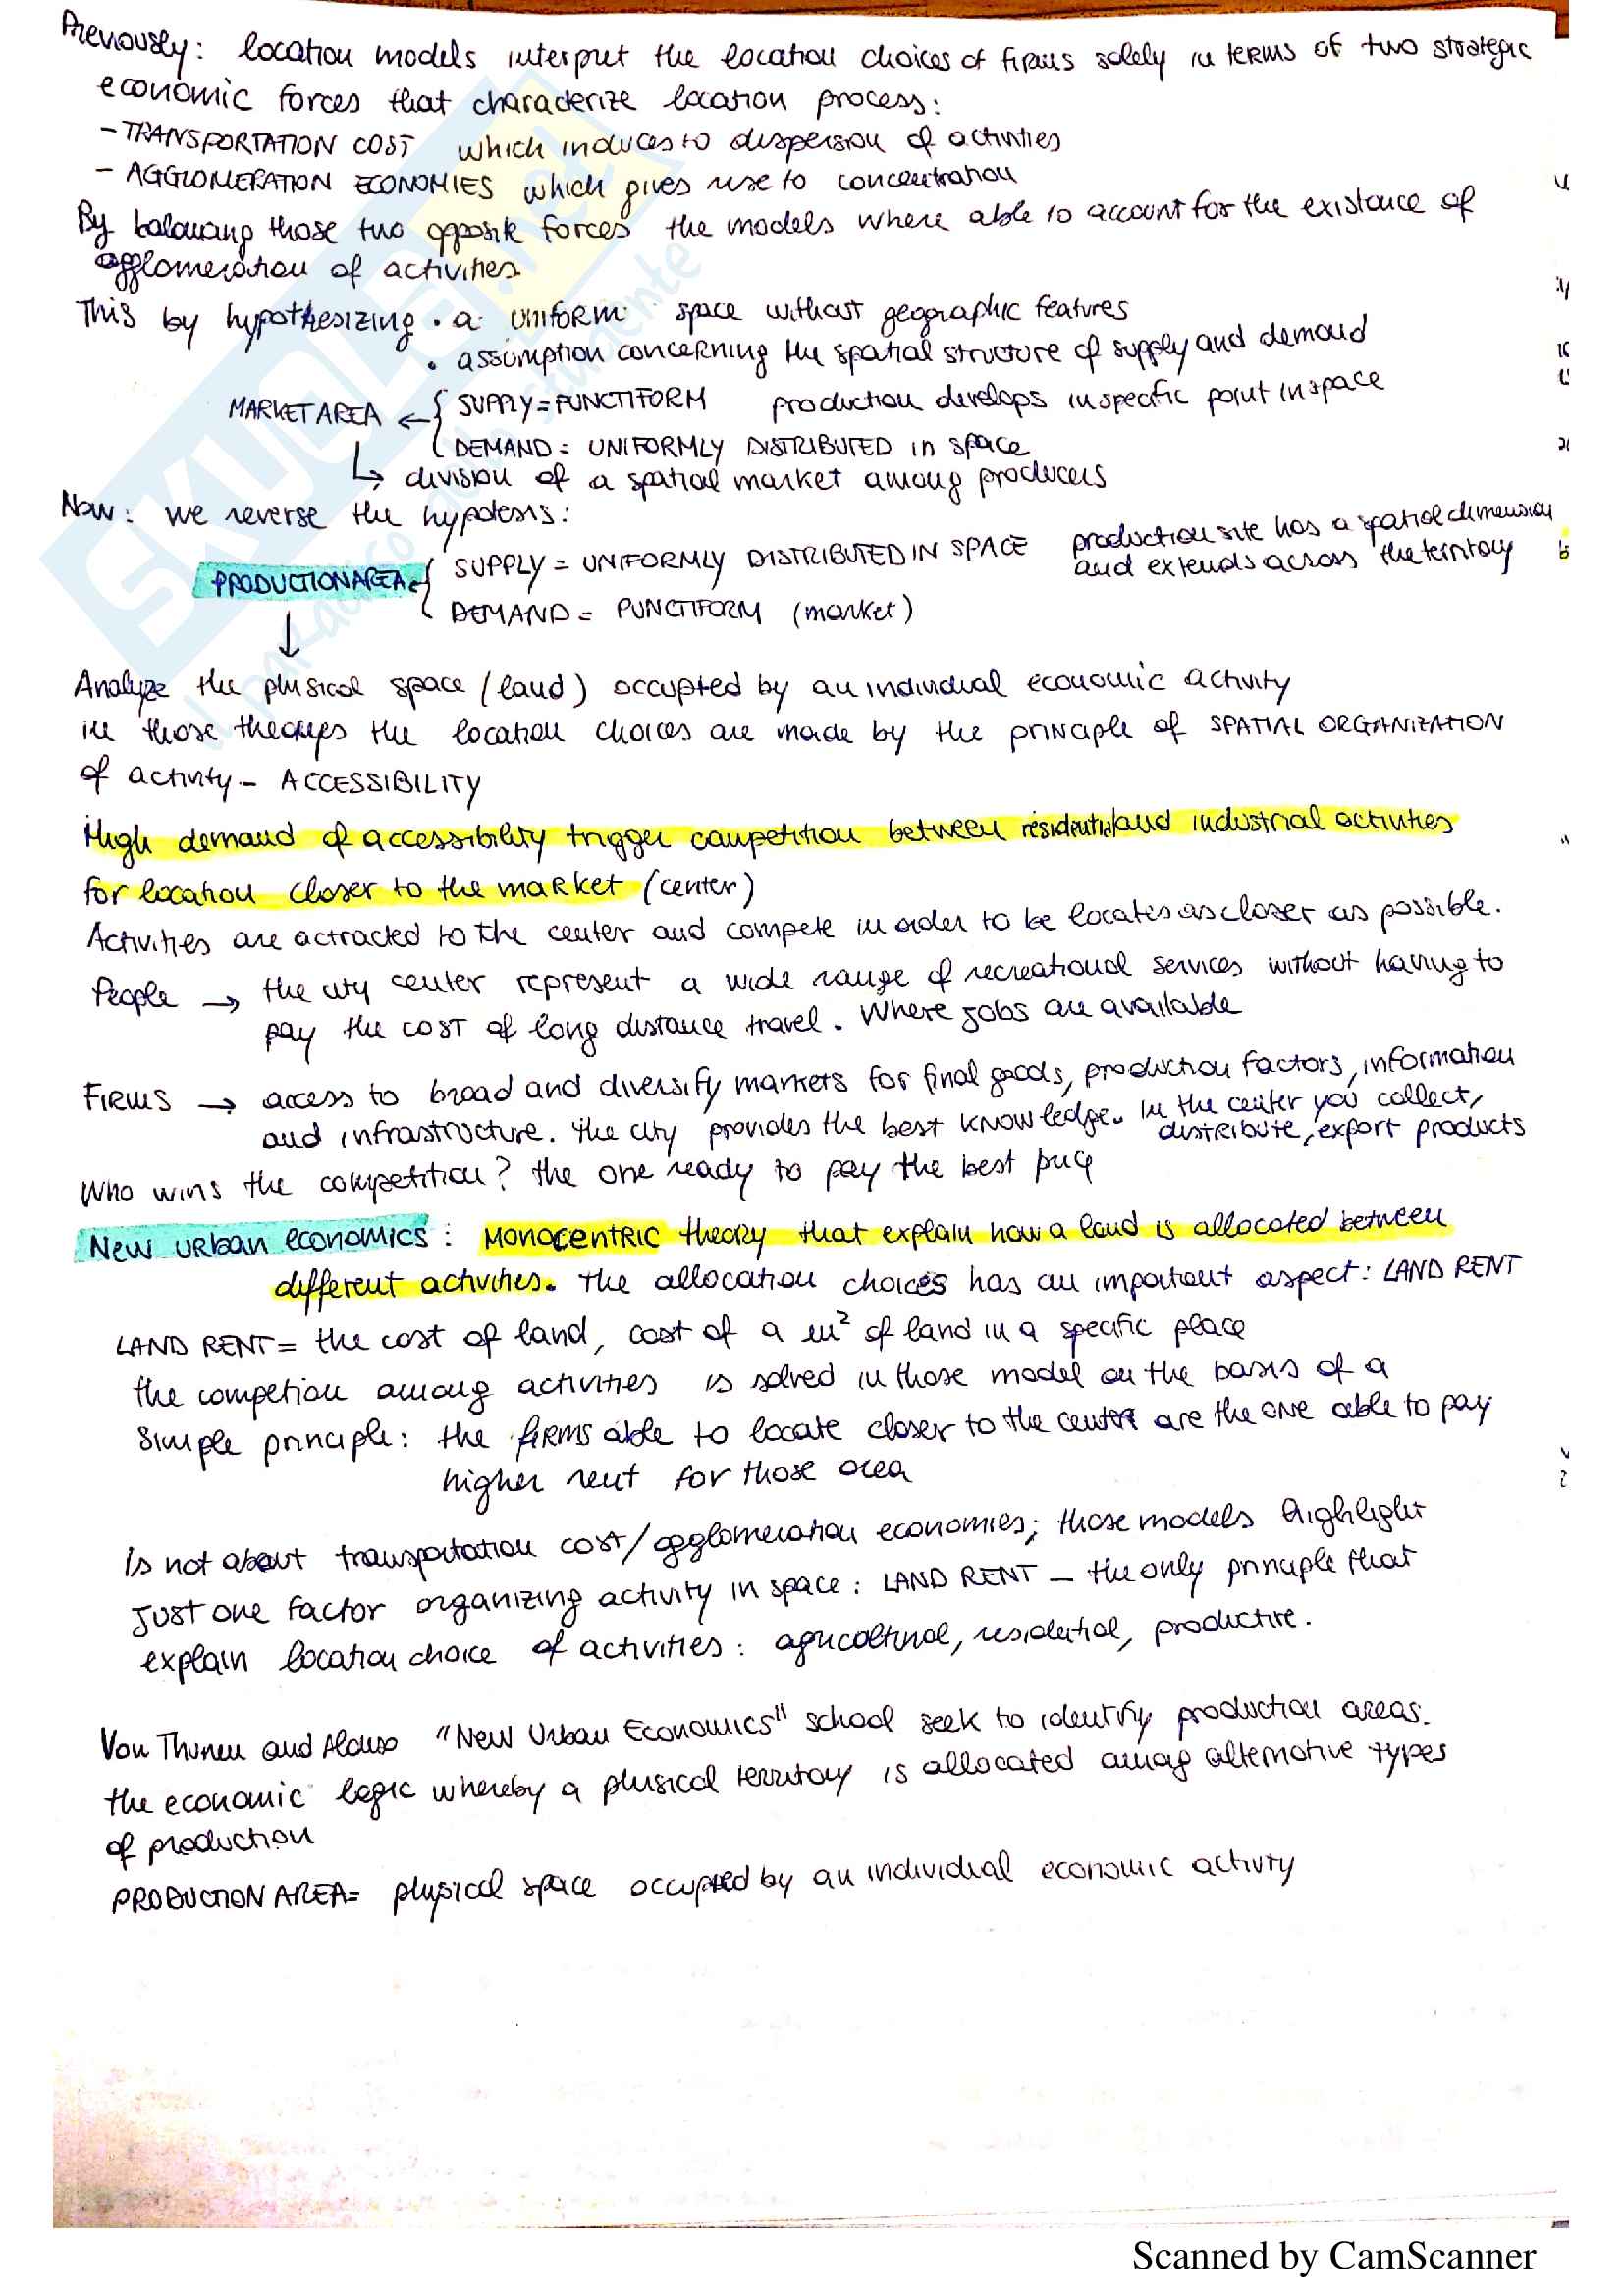 Previously: location models interpret the location choices of firms solely in terms of two strategic
economic forces that characterize location process:
- TRANSPORTATION COST which induces to dispersion of activities
- AGGLOMERATION ECONOMIES which gives rise to concentration
By balancing those two opposite forces the models where able to account for the existence of
agglomeration of activities
This by hypothesizing • a UNIFORM space without geographic features
• assumption concerning the spatial structure of supply and demand
MARKET AREA ← { SUPPLY = PUNCTIFORM production develops in specific point in space
DEMAND = UNIFORMLY DISTRIBUTED in space
↳ division of a spatial market among producers
Now: we reverse the hypotesis:
PRODUCTION AREA { SUPPLY = UNIFORMLY DISTRIBUTED IN SPACE production site has a spatial dimension
and extends across the territory
DEMAND = PUNCTIFORM (market)
↓
Analyze the phisical space (land) occupted by an individual economic activity
in those the location choices are made by the principle of SPATIAL ORGANIZATION
of activity - ACCESSIBILITY
High demand of accessibility trigger competition between residential and industrial activities
for location closer to the market (center)
Activities are actracted to the center and compete in order to be locates as closer as possible.
People → the city center represent a wide range of recreational services without having to
pay the cost of long distance travel. Where jobs are available
FIRMS → access to broad and diversify markets for final goods, production factors, information
and infrastructure. The city provides the best knowledge. In the center you collect,
distribute, export products
Who wins the competition? the one ready to pay the best price
New urban economics: MONOCENTRIC theory that explain how a land is allocated between
different activities. The allocation choices has an important aspect: LAND RENT
LAND RENT = the cost of land, cost of a m² of land in a specific place
the competion among activities is solved in those model on the basis of a
simple principle: the firms able to locate closer to the center are the one able to pay
higher rent for those area
Is not about transportation cost/agglomeration economies; those models highlight
just one factor organizing activity in space: LAND RENT - the only principle that
explain location choice of activities: agricoltural, residential, productive.
Von Thunen and Alonso "New Urban Economics" school seek to identify production areas.
the economic logic whereby a phisical territory is allocated among alternative types
of production
PRODUCTION AREA = physical space occupted by an individual economic activity
SKUOLA.net
il paradiso dello studente
Scanned by CamScanner